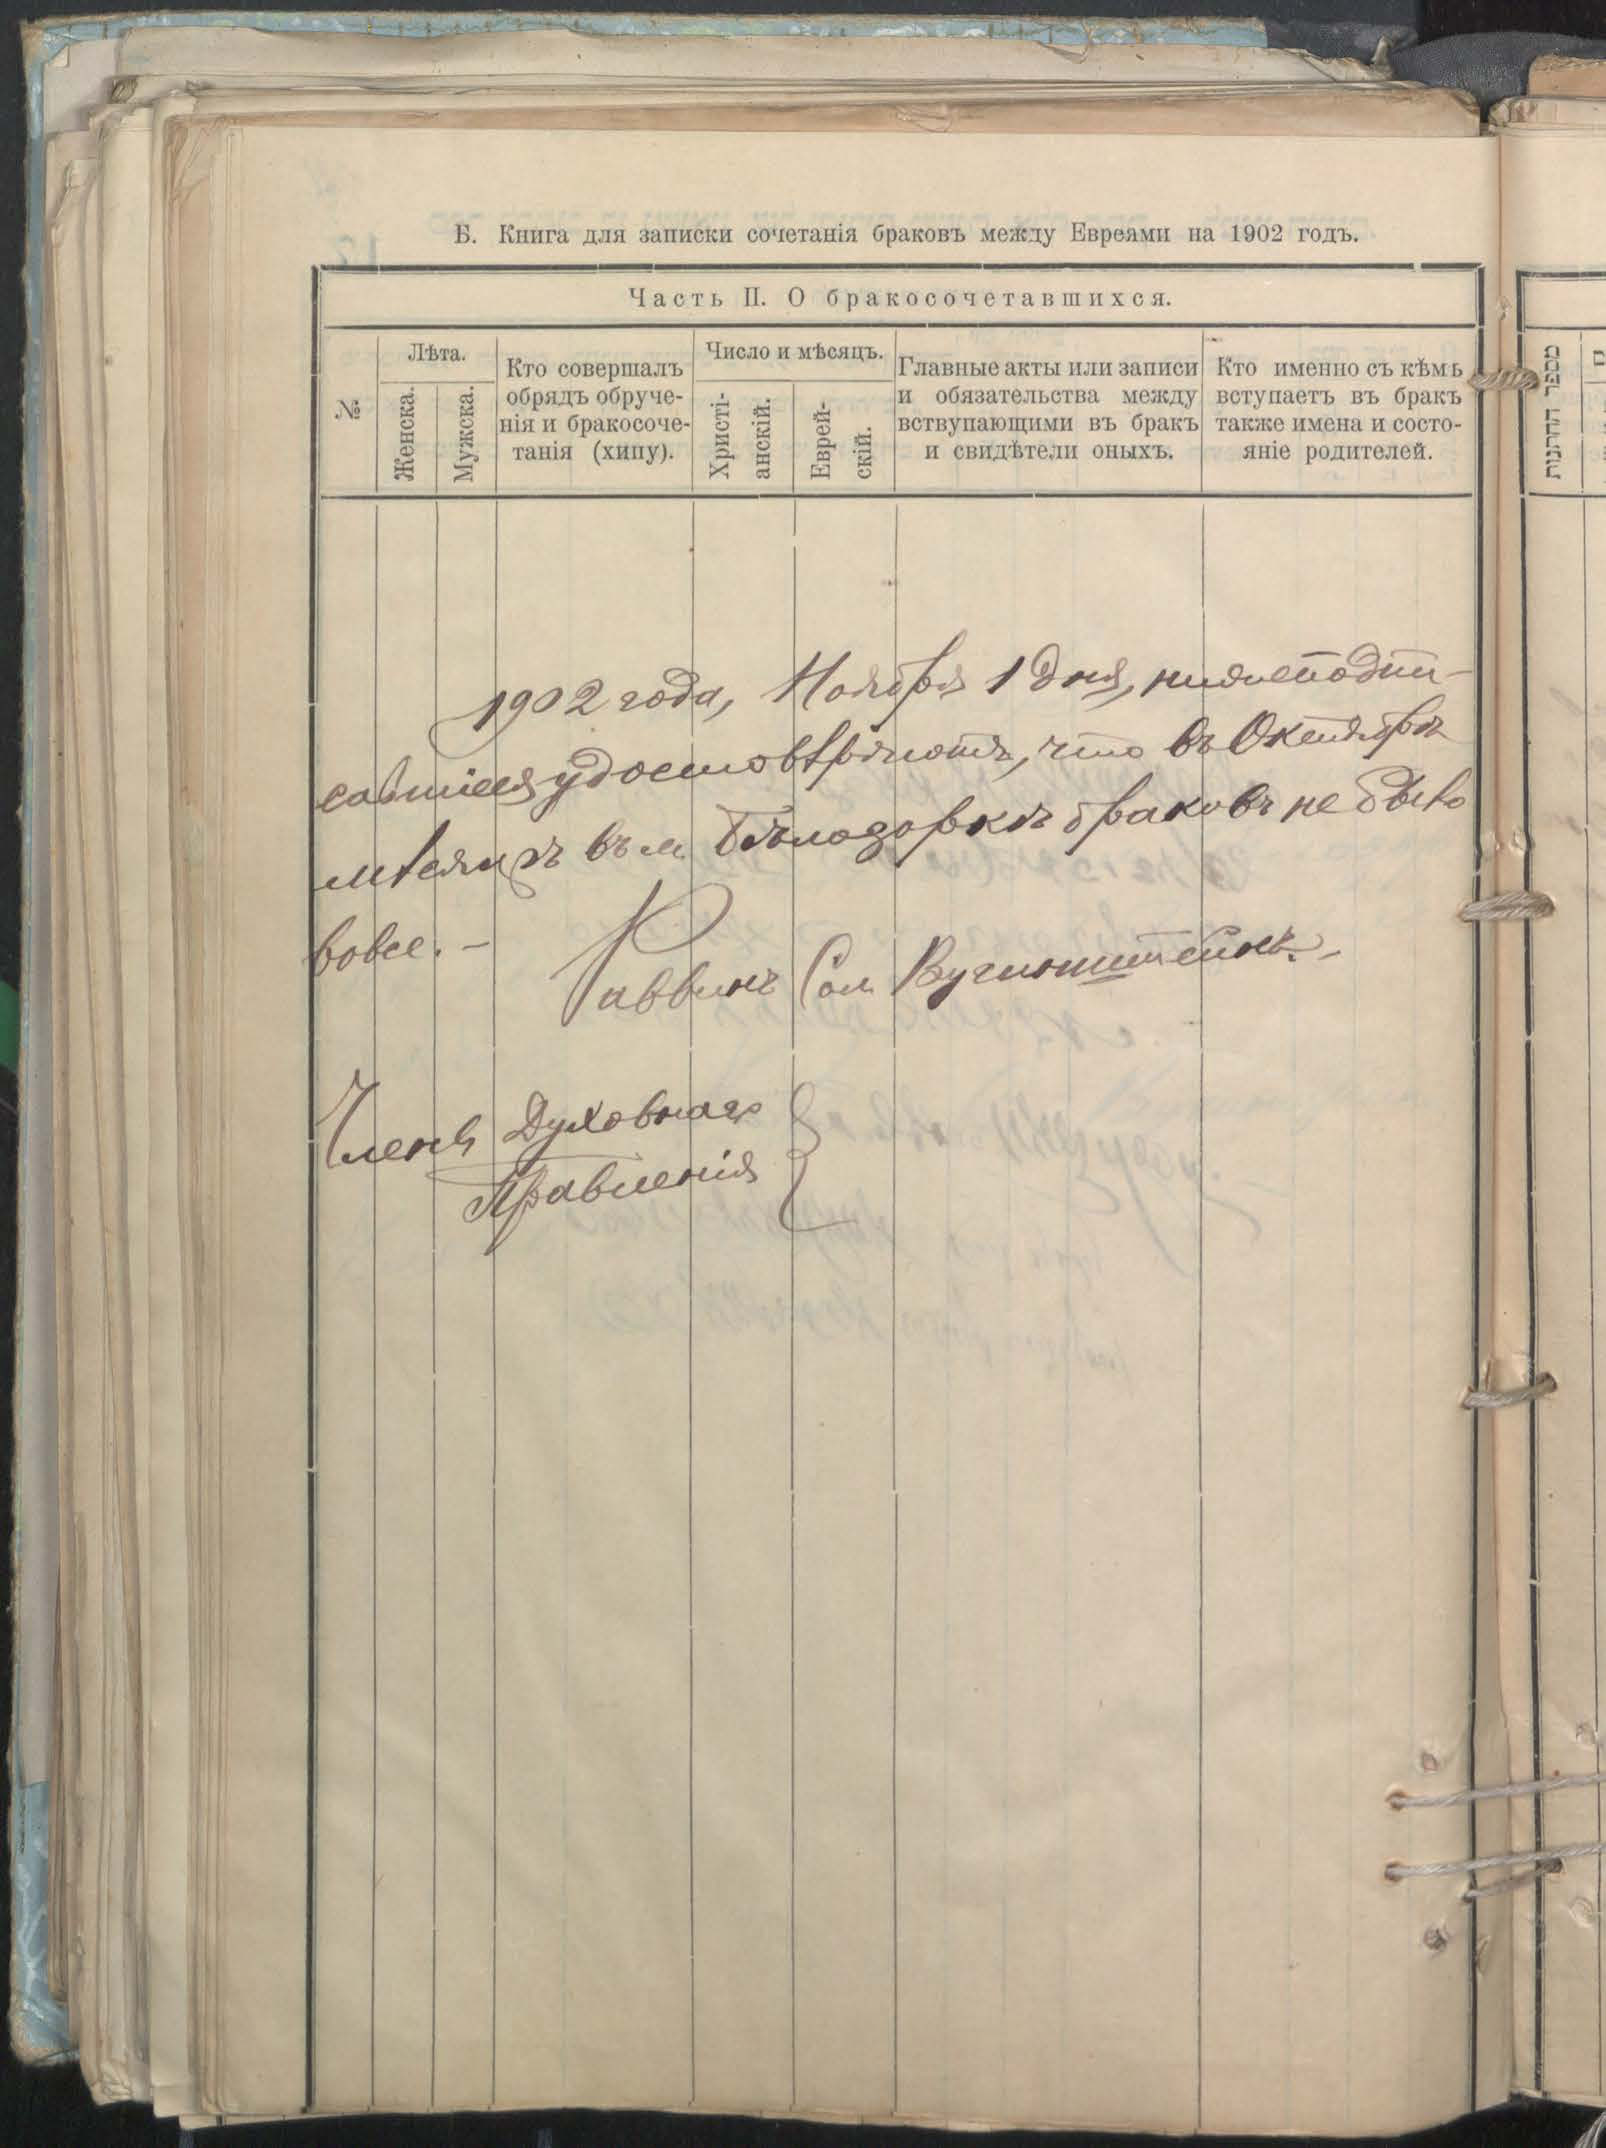 Б. Книга для записки сочетанія браковъ между Евреями на 1902 годъ.
Часть II. О бракосочетавшихся.
№
Лѣта.
Женска.
Мужска.
Кто совершалъ
обрядъ обруче-
нія и бракосоче-
танія (хипу).
Число и мѣсяцъ.
Христі-
анскій.
Еврей-
скій.
Главные акты или записи
и обязательства между
вствупающими въ бракъ
и свидѣтели оныхъ.
Кто именно съ кѣмъ
вступаетъ въ бракъ
также имена и состо-
яніе родителей.
1902 года, Ноября 1 дня, нижеподпи-
савшіеся удостовѣряютъ, что въ Октябрѣ
мѣсяцѣ въ м. Бѣлозоркѣ браковъ не было
вовсе. –
Раввинъ Сол.
Члены Духовнаго
Правленія
מספר החתונות